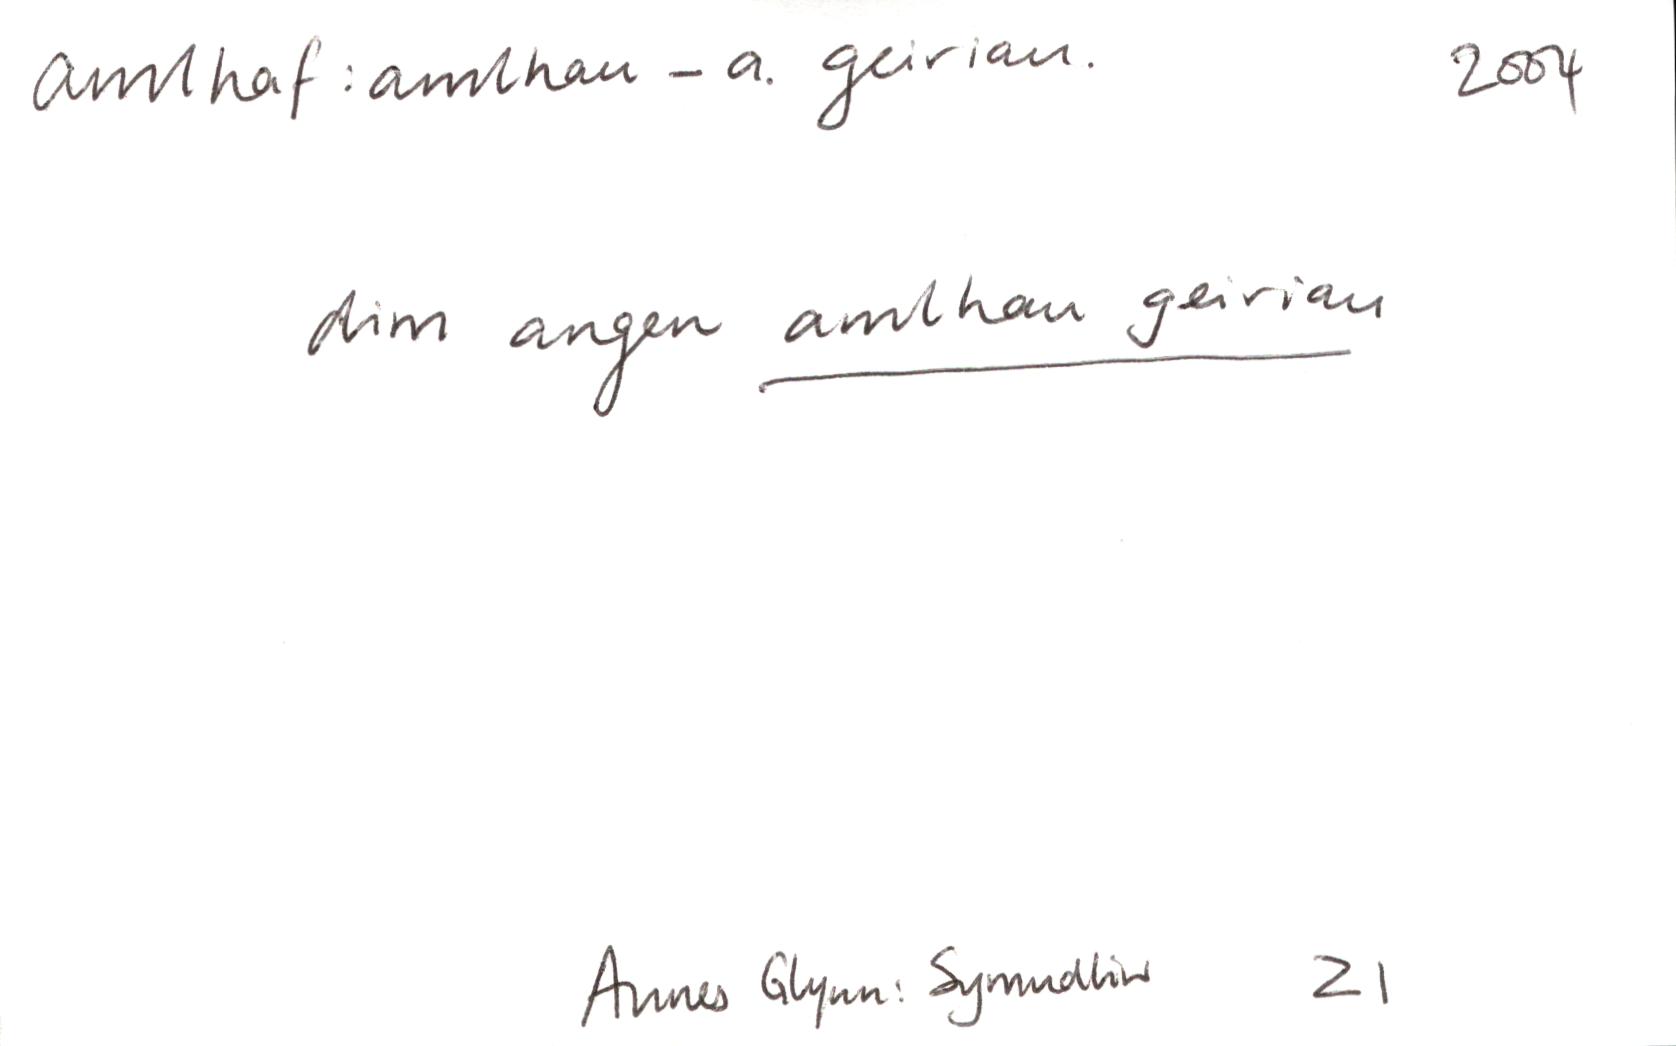 amlhaf: amlhau – a. geiriau. 2004
dim angen amlhau geiriau
Annes Glynn: Symudliw 21